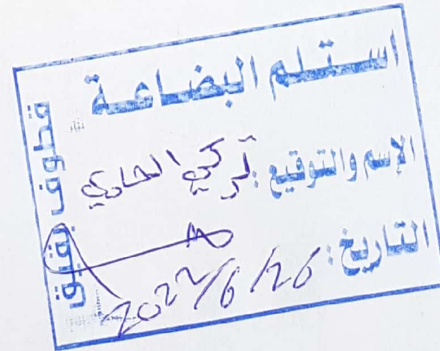 استلم البضاعة
الإسم والتوقيع : تركي الحاوي
التاريخ : 2022/6/26
قطوف